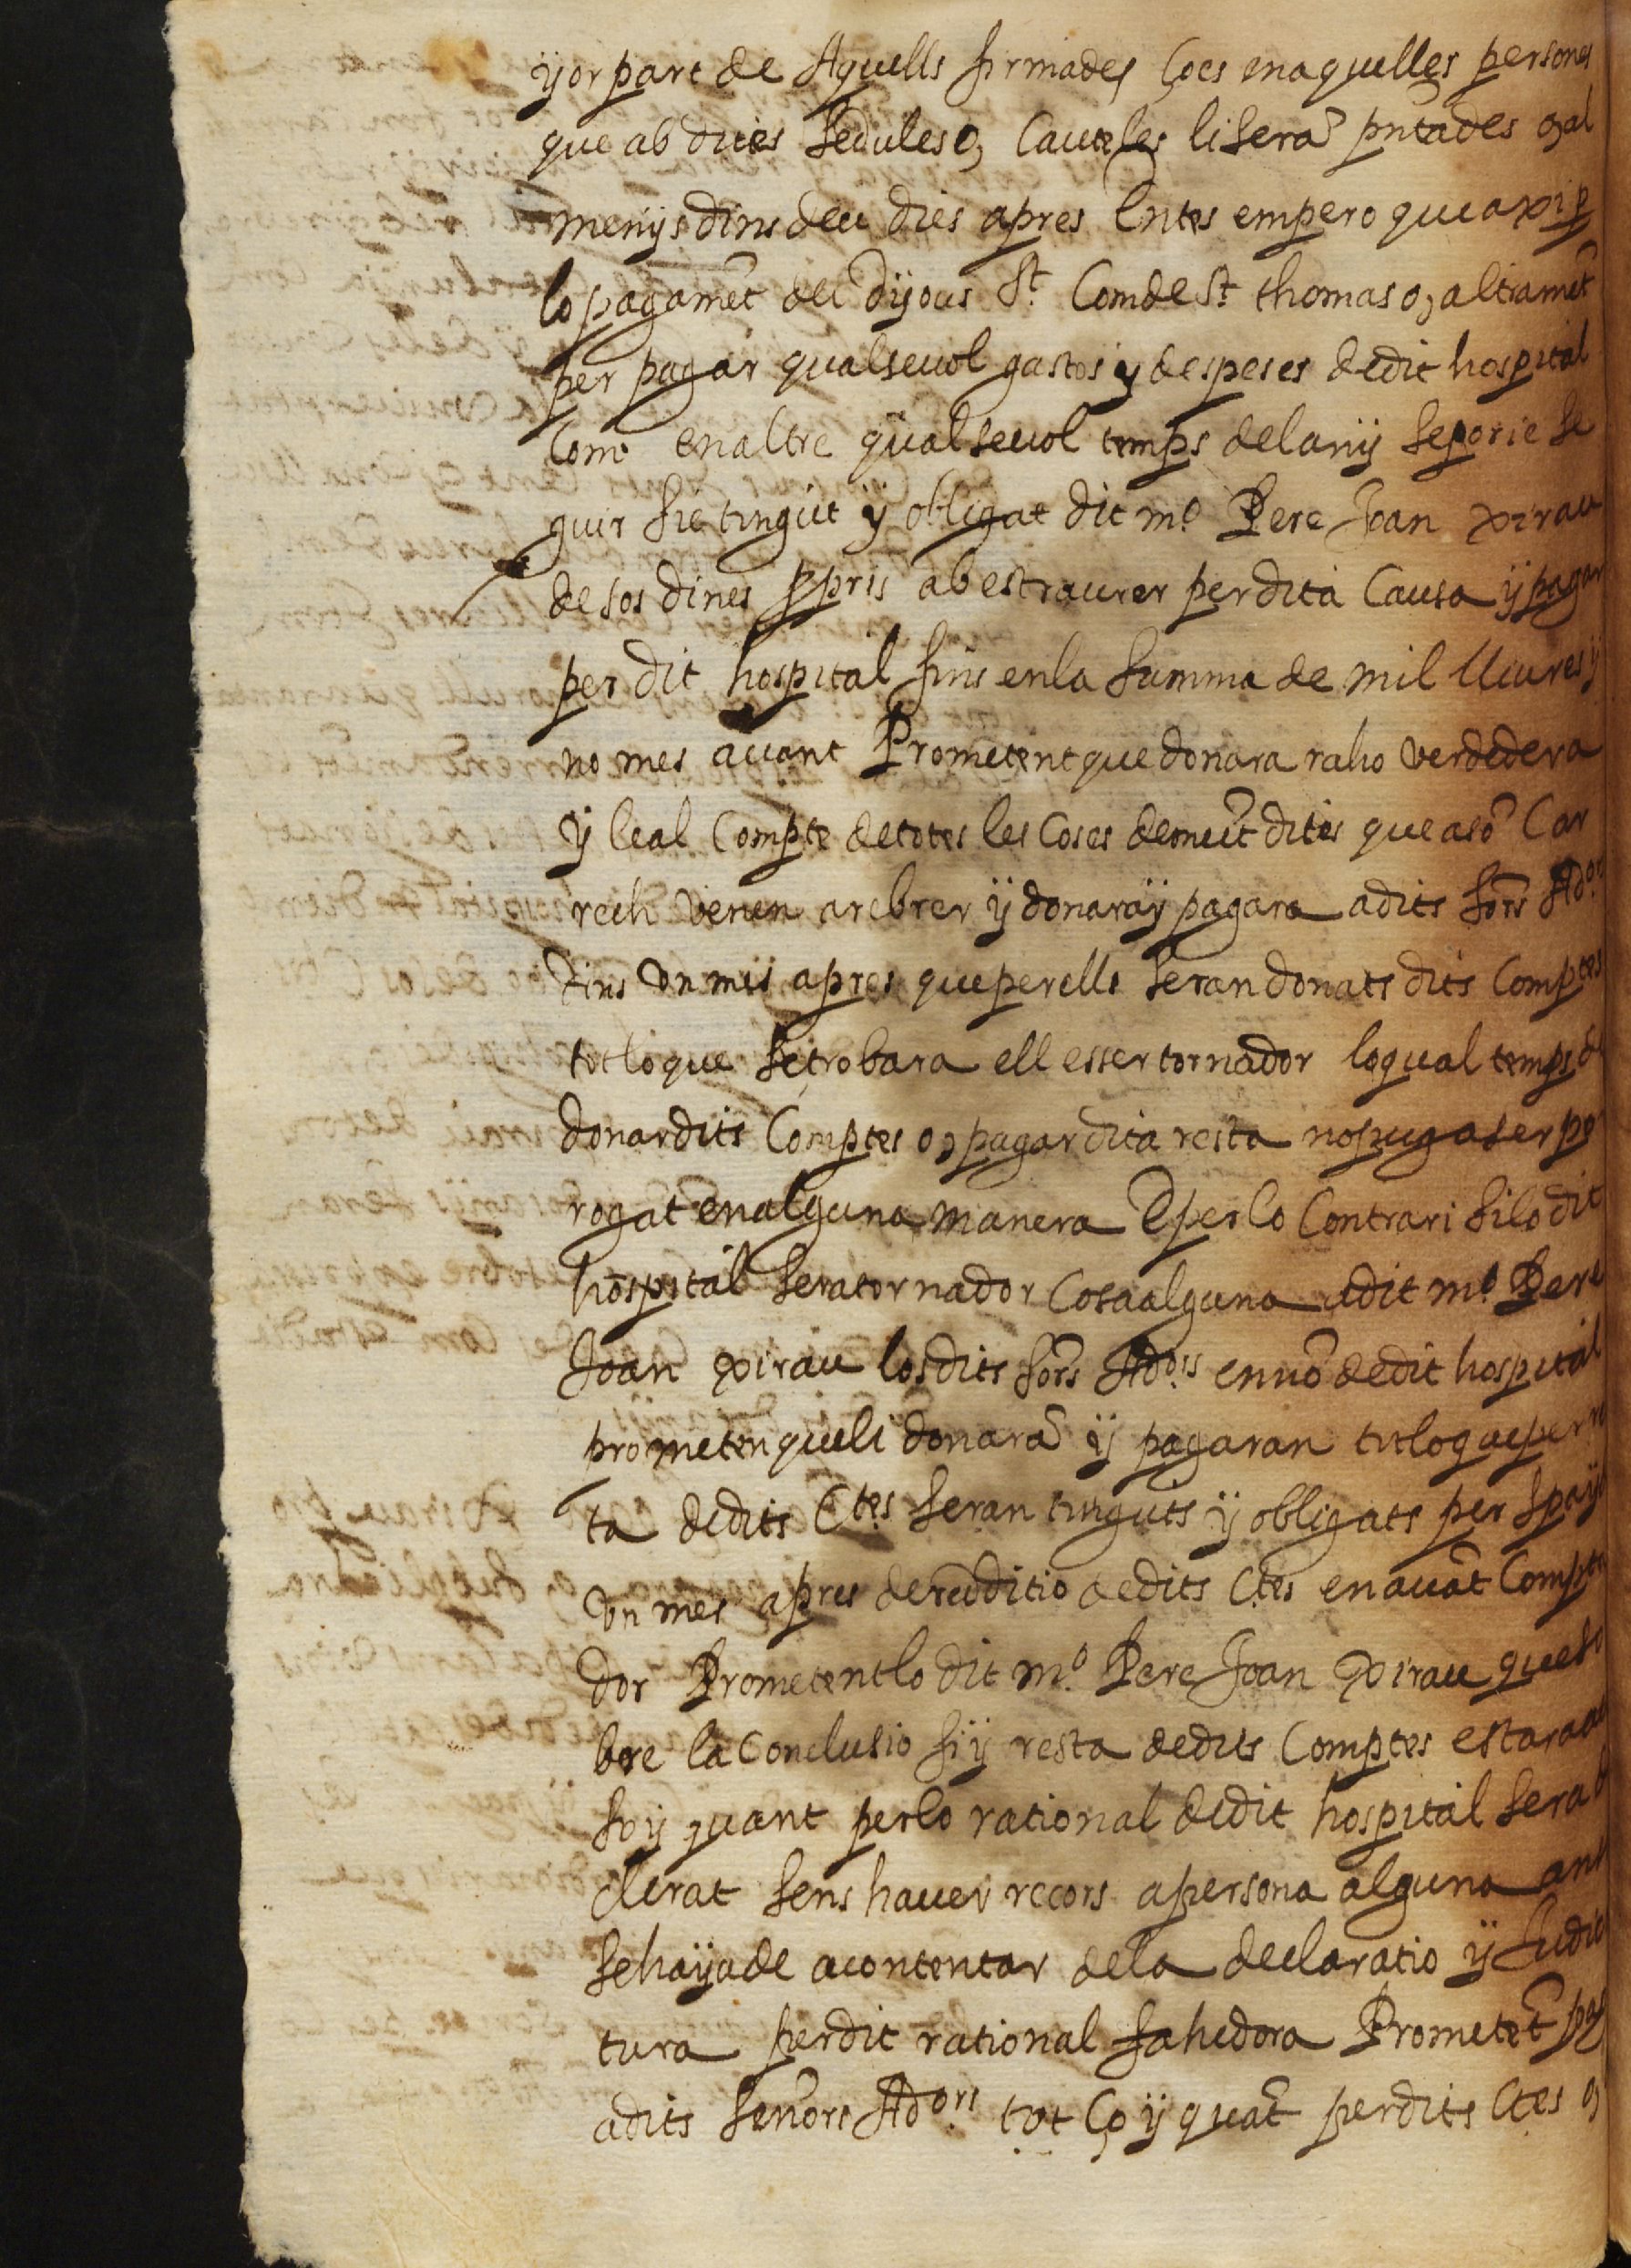 ÿ or part de Aquells firmades ços en aquelles persones
que ab dites sedules o, Cauteles li serã pñtades o, al
menÿs dins deu dies apres Entes empero que axi p
lo pagamẽt del Dijous St. Com de St. thomas o, altramẽt
per pagar qualsevol gastos ÿ despeses dedit hospital
Com en altre qualsevol temps del anÿ se porie se
guir sie tingut ÿ obligat dit mº. Pere Joan xirau
de sos dines ppris abestraurer perdita Causa ÿ pagar
per dit hospital fins en la summa de mil lliures ÿ
no mes avant Prometent que donara raho verdedera
ÿ leal Compte de totes les Coses demũt dites que a sõ Car
rech venen a rebrer ÿ donara ÿ pagara a dits sõrs Adors
dins vn mes apres que per ells seran donats dits Comptes
tot lo que se trobara ell esser tornador lo qual temps de
donar dits Comptes o, pagar dita resta no puga ser po
rogat en alguna manera E per lo Contrari si lo dit
hospital sera tornador Cosa alguna a dit mº. Pere
Joan xirau los dits sõrs Adors en nõ de dit hospital
prometen que li donarã ÿ pagaran tot lo que per re
ta de dits Ctes seran tinguts ÿ obligats per spaÿ
vn mes apres de redditio de dits Ctes en avãt Compta
dor Prometent lo dit mº. Pere Joan xirau que so
bre la Conclusio fi ÿ resta de dits Comptes estara a
so ÿ quant per lo rational de dit hospital sera d
clerat sens haver recors a persona alguna ans
se haÿa de acontentar de la declaratio ÿ Judic
tura per dit rational fahedora Prometẽt pag
a dits señors Adors tot ço ÿ quãt per dits Ctes o,